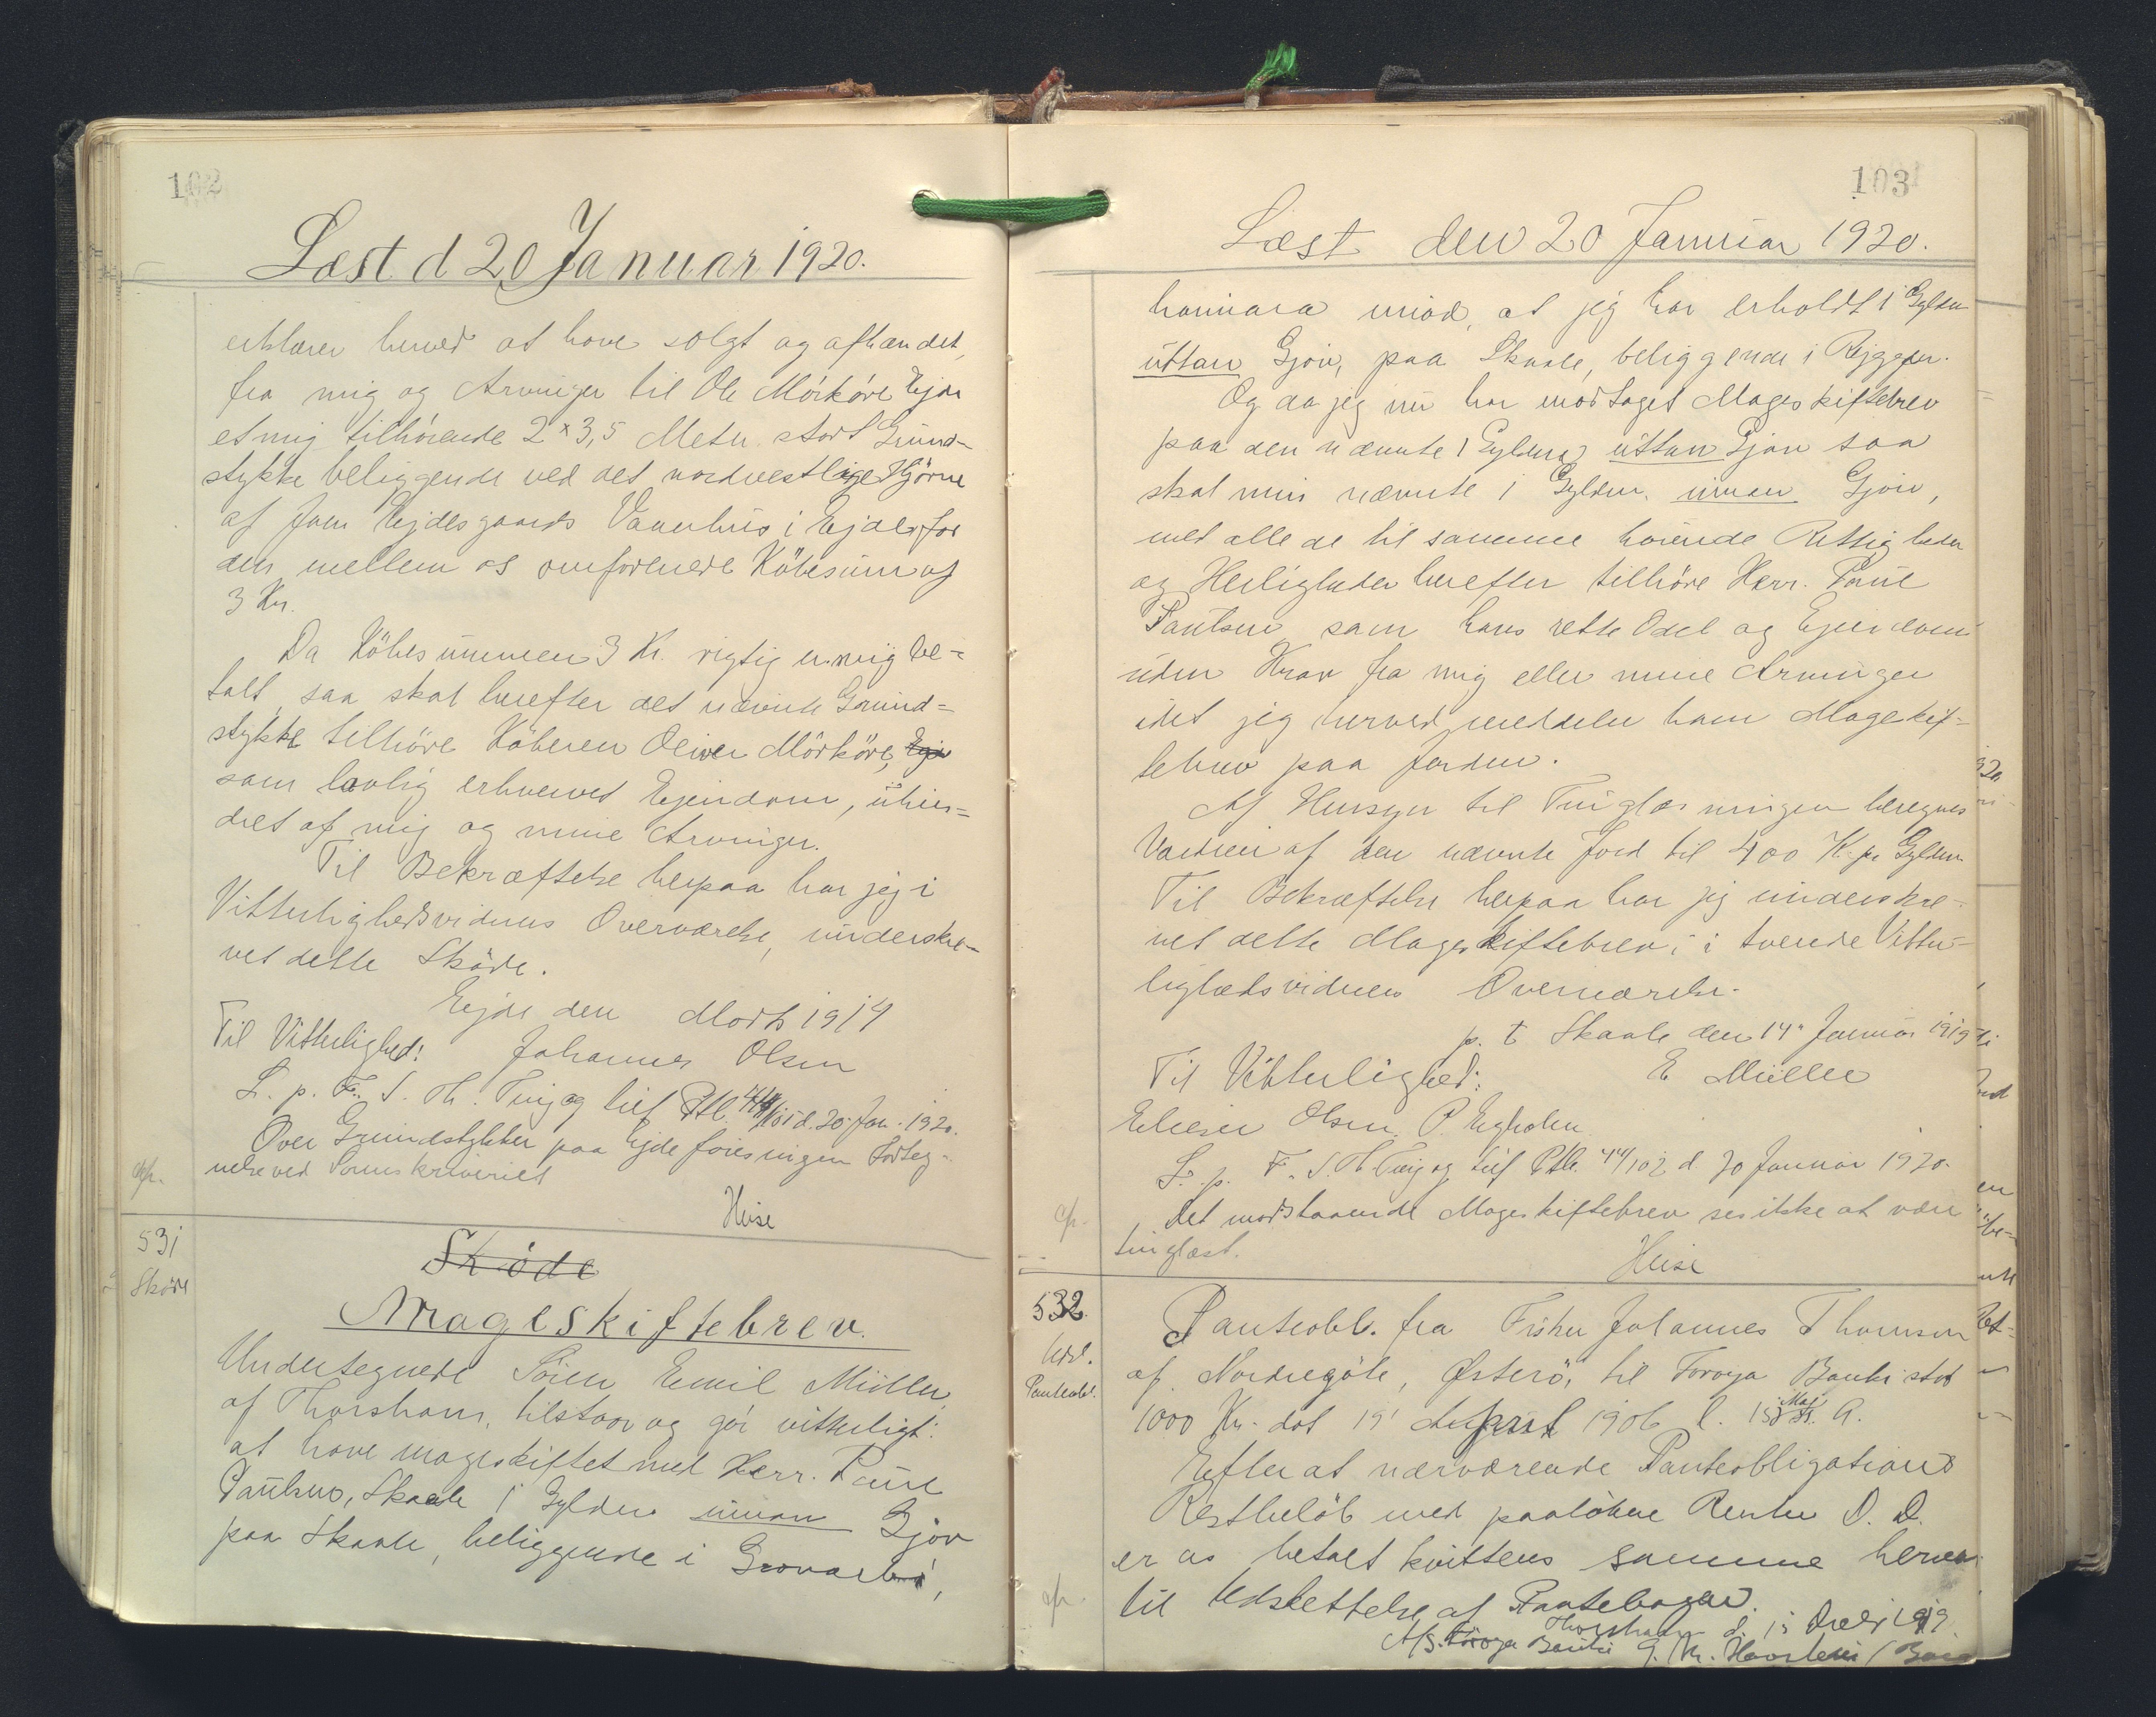 102
Læst d 20 Januar 1920.
erklærer herved at have solgt og afhændet
fra mig og Arvinger til Ole Mörköre Ejde
et mig tilhörende 2 x 3,5 Meter stort Grund-
stykke beliggende ved det nordvestlige Hjörne
af Joen Ejdesgaards Vaanhus i Ejde, for
den mellem os omforenede Köbesum af
3 Kr.
Da Köbesummen 3 Kr. rigtig er mig be-
talt, saa skal herefter det nævnte Grund=
stykke tilhöre Köberen Oliver Mörköre, Ejde
som lovlig erhvervet Ejendom, uhin=
dret af mig og mine Arvinger.
Til Bekræftelse herpaa har jeg i
Vitterlighedsvidners Overværelse underskre-
vet dette Sköde.
Ejde den Marts 1914
Til Vitterlighed: Johannes Olsen
L. p. F. S. Th. Ting og tilf Ptb. 44/101 d. 20 Jan. 1920.
Over Grundstykker paa Ejde föres ingen Forteg-
nelse ved Sorenskriveriet
Heise
531
Sköde
Sköde
Mageskiftebrev.
Undertegnede Sören Emil Müller
af Thorshavn, tilstaar og gör vitterligt:
at have mageskiftet med Herr. Paul
Paulsen, Skaale 1 Gylden innan Gjov
paa Skaale, beliggende i
103
Læst den 20 Januar 1920.
hannara mod, at jeg har erholdt 1 Gylden
uttan Gjov, paa Skaale, beliggende i
Og da jeg nu har modtaget Mageskiftebrev
paa den nævnte 1 Gylden uttan Gjov saa
skal min nævnte 1 Gylden innan Gjov,
med alle de til samme hörende Rettigheder
og Herligheder herefter tilhöre Herr. Paul
Paulsen som hans rette Odel og Ejendom
uden Krav fra mig eller mine Arvinger
idet jeg herved meddeler ham Mageskif-
tebrev paa Jorden.
Af Hensyn til Tinglæsningen beregnes
Værdien af den nævnte Jord til 400 Kr. pr Gylden
Til Bekræftelse herpaa har jeg underskre-
vet dette Mageskiftebrev i tvende Vitter-
lighedsvidners Overværelse.
p. t. Skaale den 14 Januar 1919
Til Vitterlighed: E Müller
Elieser Olsen P. Egholm
L. p. F. S. Th. Ting og tilf Ptb. 44/102 d. 20 Januar 1920.
Det modstaaende Mageskiftebrev ses ikke at være
tinglæst.
Heise
532.
Udsl.
Panteobl.
Panteobl. fra Fisker Johannes Thomsen
af Nordregöte, Österö, til Foroya Banki stor
1000 Kr. dat 19 April 1906 l. 15 Maj s. A.
Efter at nærværende Panteobligations
Restbelöb med paalöbne Renter D. D.
er os betalt kvitteres samme herved
til Udslettelse af Pantebogen.
Thorshavn d. 15 Decbr 1919.
A/S. Foroya Banki